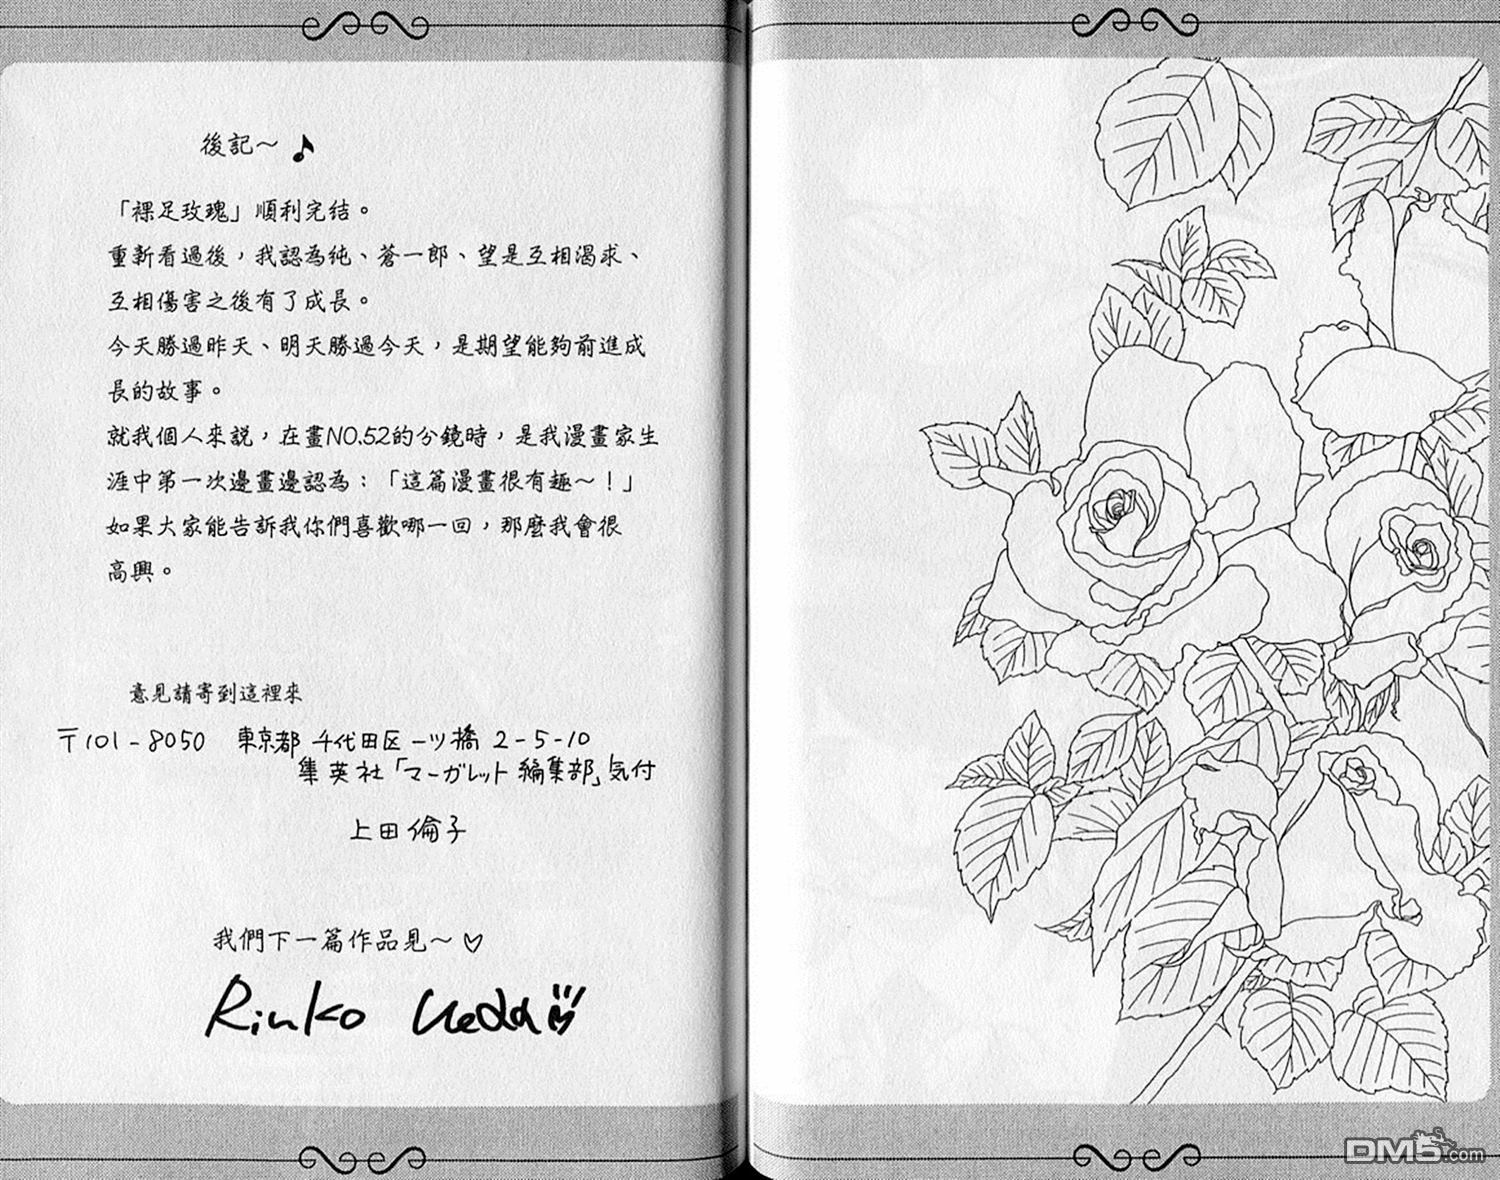 後記～♪
「裸足玫瑰」順利完結。
重新看過後，我認為純、蒼一郎、望是互相渴求、
互相傷害之後有了成長。
今天勝過昨天、明天勝過今天，是期望能夠前進成
長的故事。
就我個人來說，在畫NO.52的分鏡時，是我漫畫家生
涯中第一次邊畫邊認為：「這篇漫畫很有趣～！」
如果大家能告訴我你們喜歡哪一回，那麼我會很
高興。
意見請寄到這裡來
〒101-8050 東京都 千代田区一ツ橋 2-5-10
集英社「マーガレット編集部」気付
上田倫子
我們下一篇作品見～♡
Rinko Ueda
DM5.com